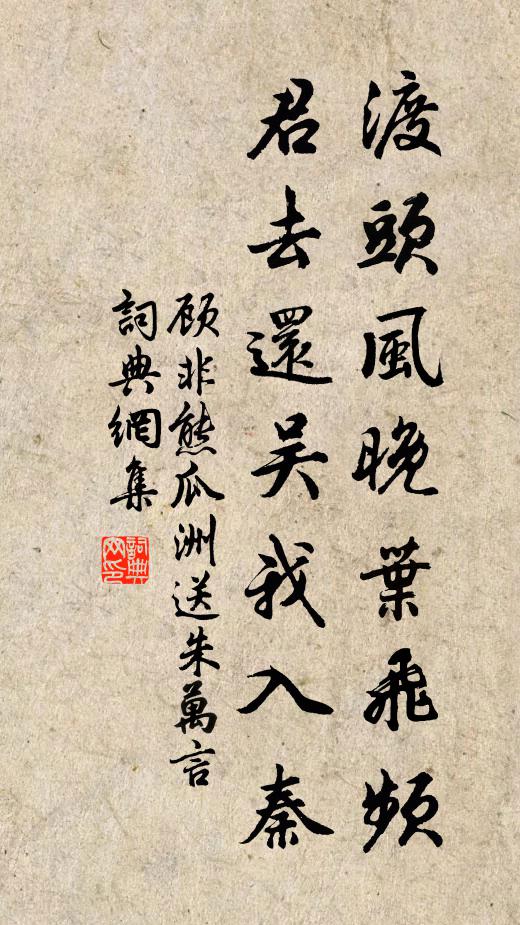 渡頭風晚葉飛頻
君去還吴我入秦
顾非熊瓜洲送朱萬言
詞典網集
詞典网印